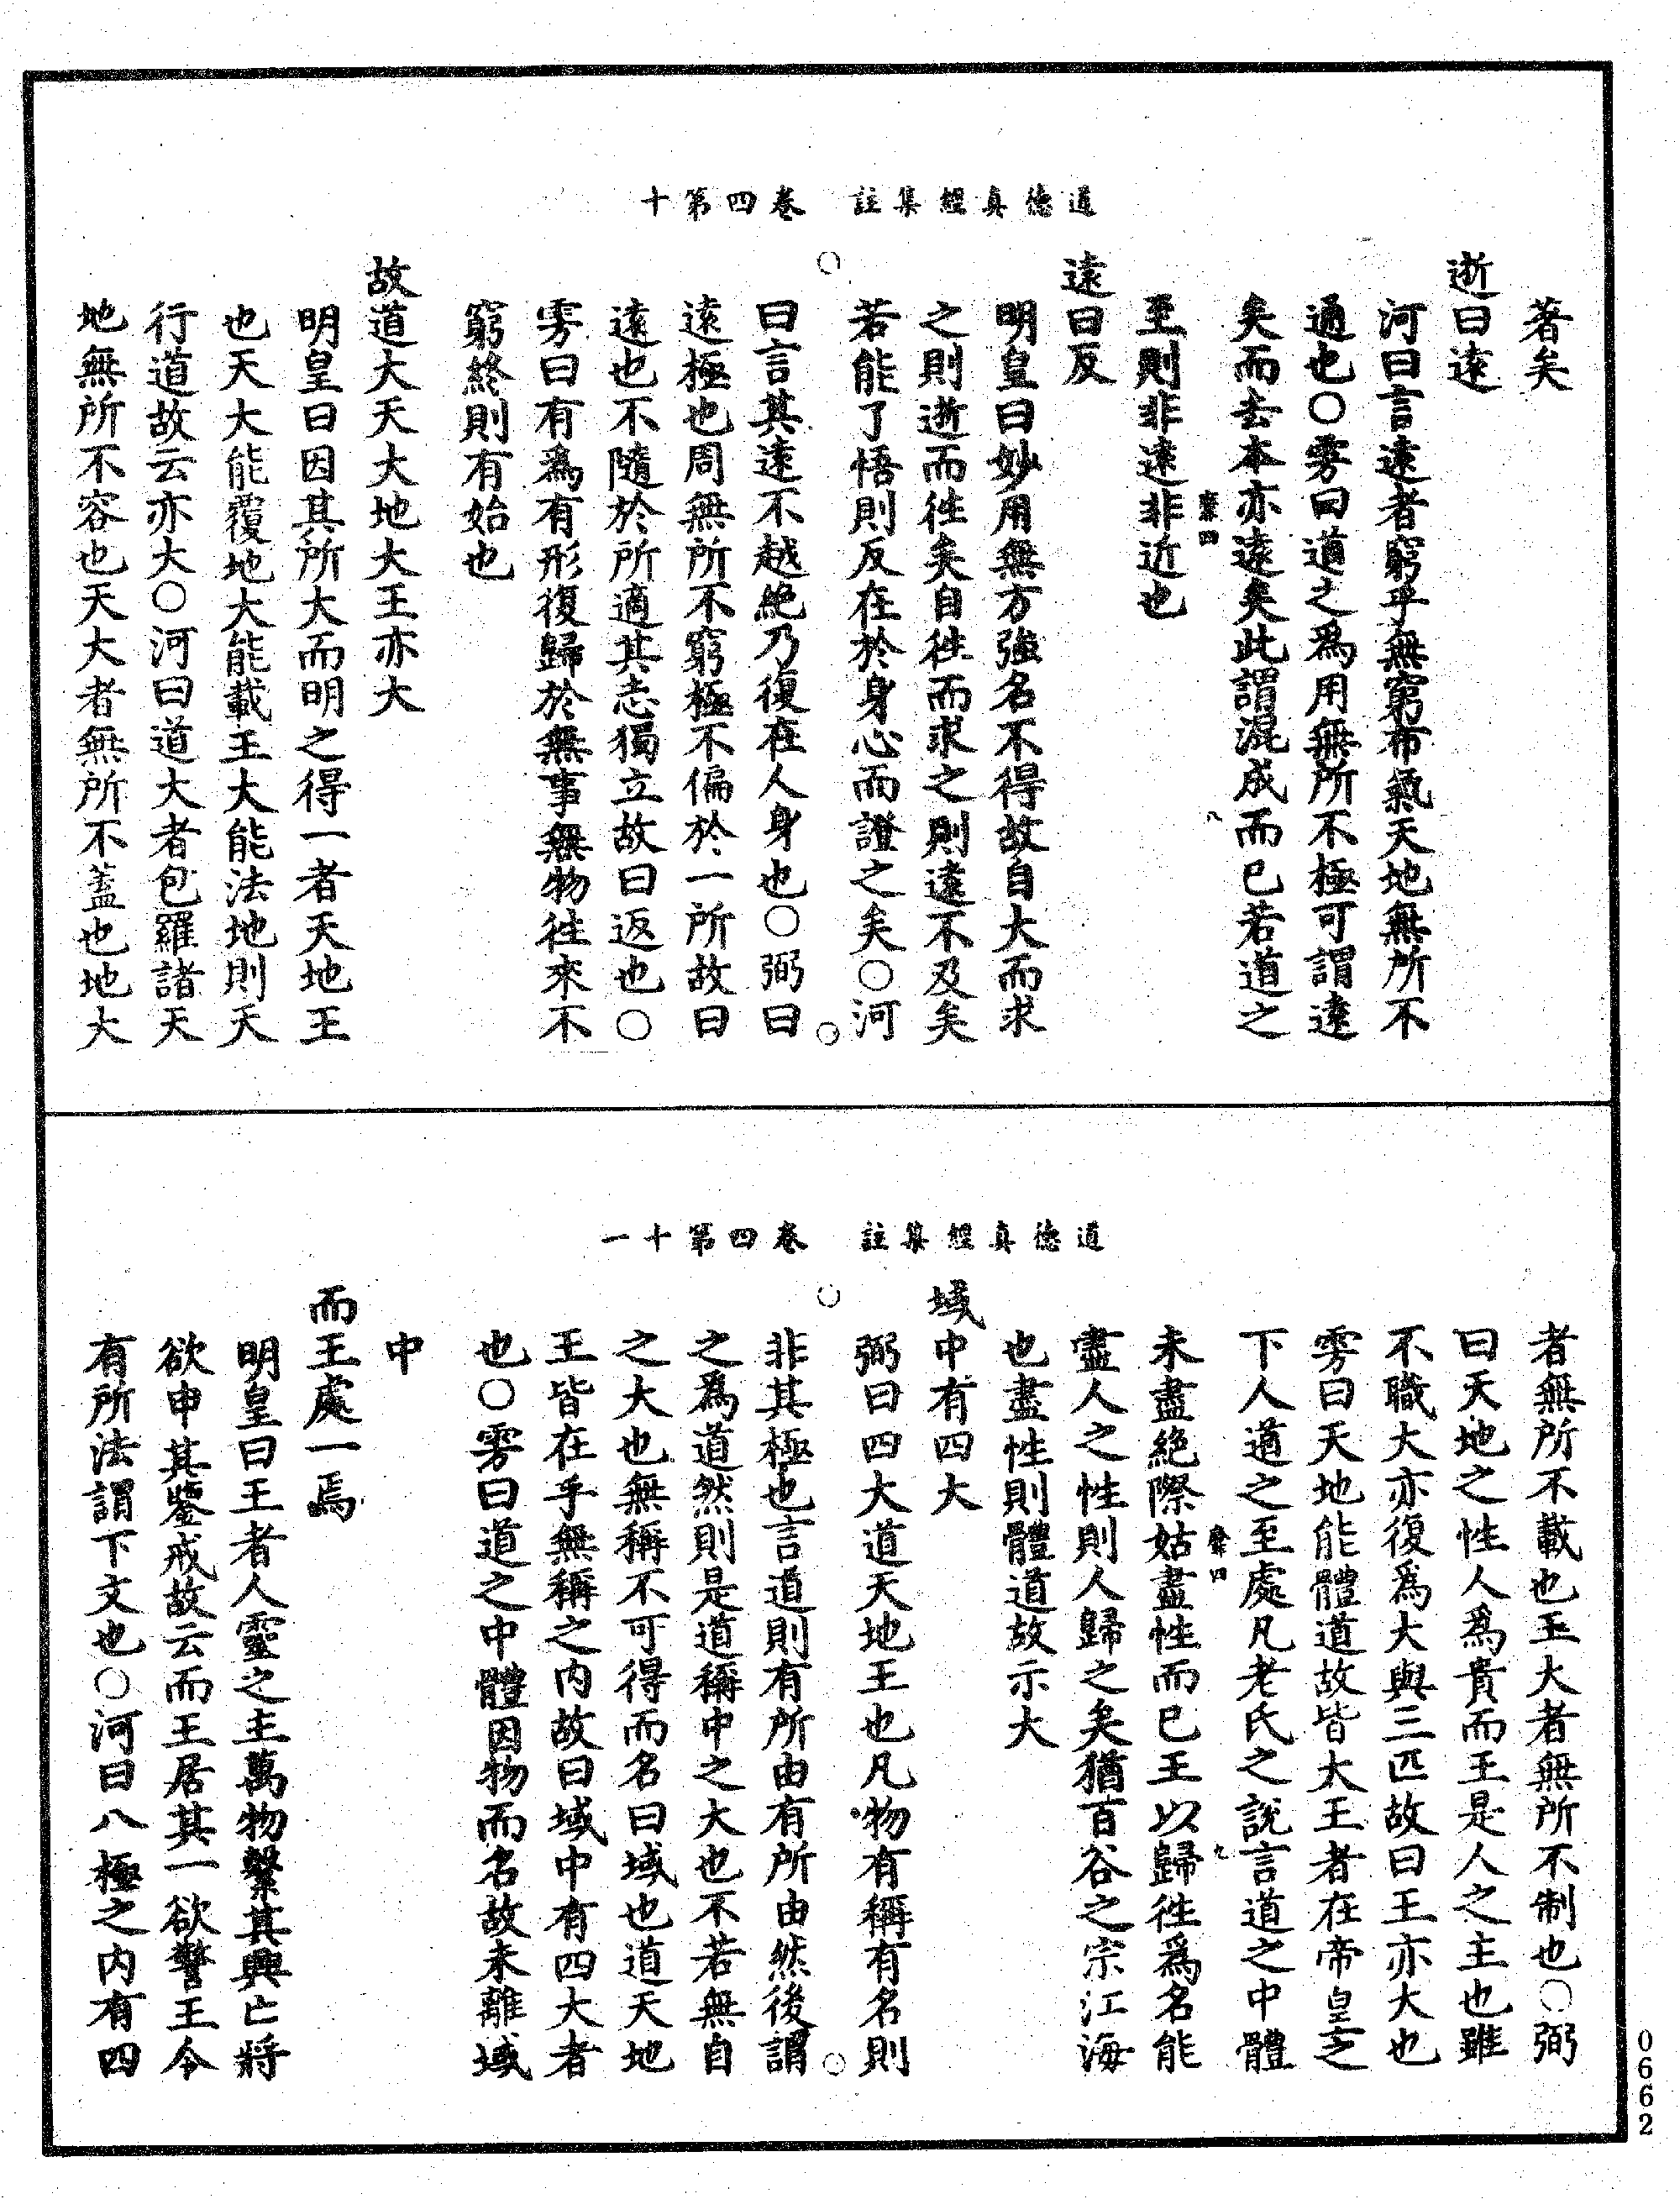 道德真經集註　卷四第十
著矣
逝曰遠
河曰言遠者窮乎無窮布氣天地無所不
通也○雱曰道之爲用無所不極可謂遠
矣而去本亦遠矣此謂混成而已若道之
至則非遠非近也
遠曰反
明皇曰妙用無方強名不得故自大而求
之則逝而徃矣自徃而求之則遠不及矣
若能了悟則反在於身心而證之矣○河
曰言其遠不越絶乃復在人身也○弼曰
遠極也周無所不窮極不偏於一所故曰
遠也不隨於所適其志獨立故曰返也○
雱曰有爲有形復歸於無事無物徃來不
窮終則有始也
故道大天大地大王亦大
明皇曰因其所大而明之得一者天地王
也天大能覆地大能載王大能法地則天
行道故云亦大○河曰道大者包羅諸天
地無所不容也天大者無所不蓋也地大
道德真經集註　卷四第十一
者無所不載也王大者無所不制也○弼
曰天地之性人爲貴而王是人之主也雖
不職大亦復爲大與三匹故曰王亦大也
雱曰天地能體道故皆大王者在帝皇之
下人道之至處凡老氏之說言道之中體
未盡絶際姑盡性而已王以歸徃爲名能
盡人之性則人歸之矣猶百谷之宗江海
也盡性則體道故示大
域中有四大
弼曰四大道天地王也凡物有稱有名則
非其極也言道則有所由有所由然後謂
之爲道然則是道稱中之大也不若無自
之大也無稱不可得而名曰域也道天地
王皆在乎無稱之内故曰域中有四大者
也○雱曰道之中體因物而名故未離域
中
而王處一焉
明皇曰王者人靈之主萬物繫其興亡將
欲申其鑒戒故云而王居其一欲警王令
有所法謂下文也○河曰八極之内有四
0662